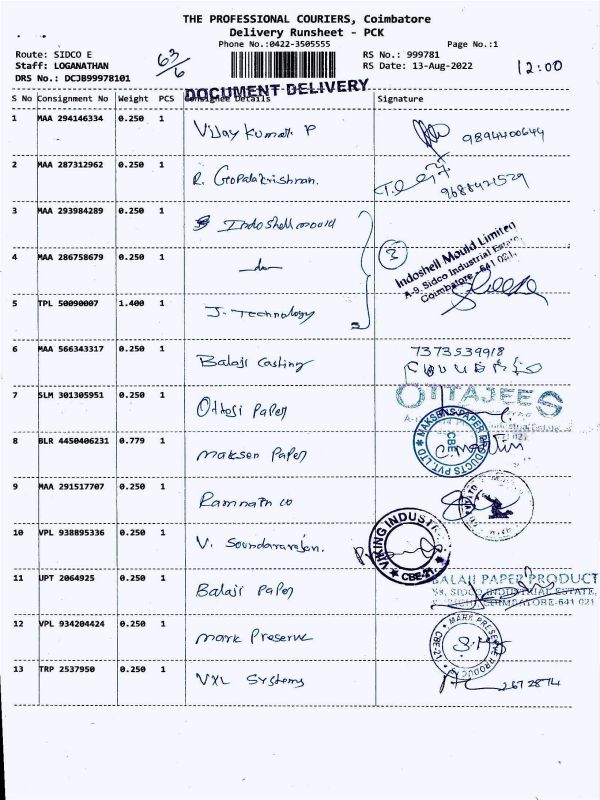 THE PROFESSIONAL COURIERS, Coimbatore
Delivery Runsheet - PCK
Phone No.:0422-3505555 Page No.:1
Route: SIDCO E RS No.: 999781
Staff: LOGANATHAN RS Date: 13-Aug-2022
DRS No.: DCJB99978101
63/6
12:00
DOCUMENT DELIVERY
S No Consignment No Weight PCS Consignee Details Signature
1 MAA 294146334 0.250 1 Vijay Kumar. P 9894400644
2 MAA 287312962 0.250 1 R. Gopalakrishnan.
3 MAA 293984289 0.250 1 Indoshell mould
4 MAA 286758679 0.250 1 -do-
3
Indoshell Mould Limited
A-9, Sidco Industrial Estate,
Coimbatore-641 021.
5 TPL 50090007 1.400 1 J. Technology
6 MAA 566343317 0.250 1 Balaji Casting 7373539918
7 SLM 301305951 0.250 1 Ottoji Paper
OTTAJEES
8 BLR 4450406231 0.779 1 makson Paper
MAKSONS PAPER PRODUCTS PVT LTD
CBE
9 MAA 291517707 0.250 1 Ramnath co
10 VPL 938895336 0.250 1 V. Soundararajan.
VIKING INDUSTR
CBE-21.
11 UPT 2064925 0.250 1 Balaji Paper
BALAJI PAPER PRODUCT
SIDCO INDUSTRIAL ESTATE,
COIMBATORE-641 021
12 VPL 934204424 0.250 1 mark Preserve
MARK PRESERVE PRODUCTS
CBE-21
13 TRP 2537950 0.250 1 VXL Systems 2672874